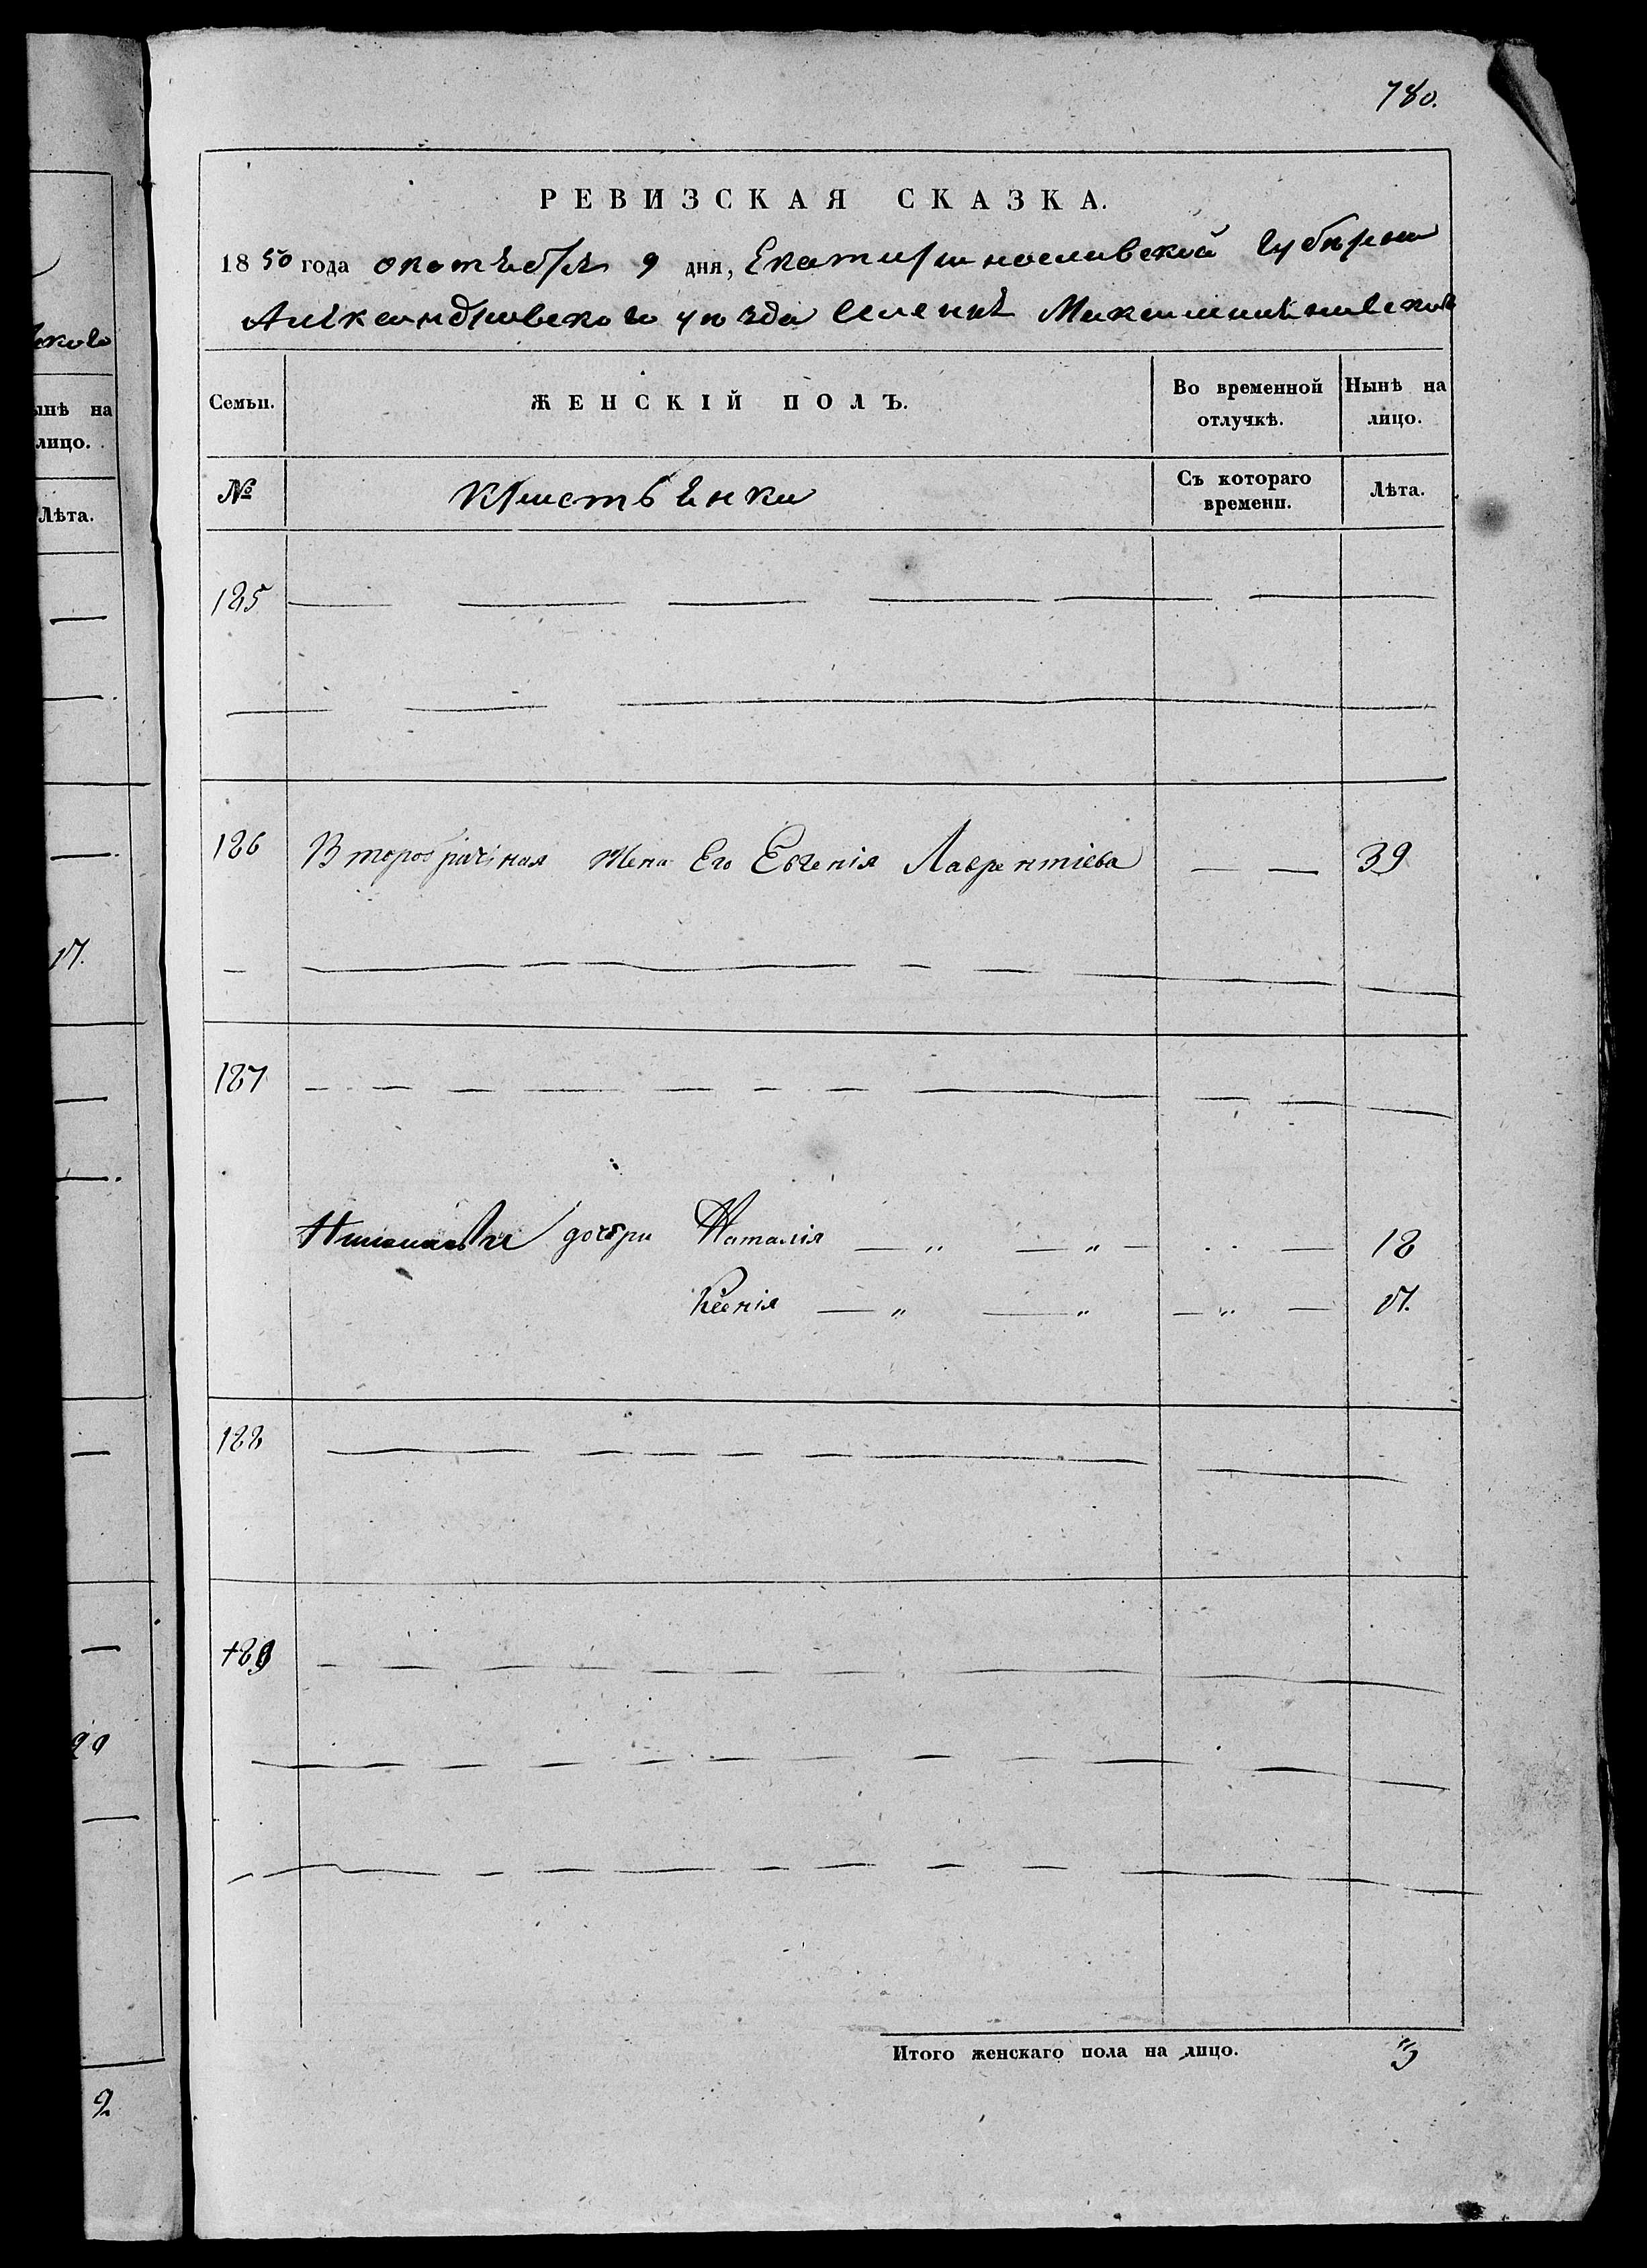 780.
РЕВИЗСКАЯ СКАЗКА.
1850 года октября 9 дня, Екатеринославской Губернии
Александровскаго уѣзда
Семьи. ЖЕНСКІЙ ПОЛЪ. Во временной отлучкѣ. Нынѣ на лицо.
№ Крестьянки Съ котораго времени. Лѣта.
125
126 Второбрачная жена Его Евгенія Лаврентіева — — 39
127
дочери Наталія — „ — „ — . . — 12
Ксенія — „ — „ — „ — 17.
122
129
Итого женскаго пола на лицо. 3
ково
ынѣ на
лицо.
Лѣта.
17.
2